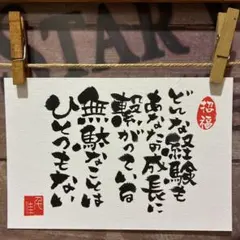 STAR
招福
どんな経験も
あなたの成長に
繋がっている
無駄なことは
ひとつもない